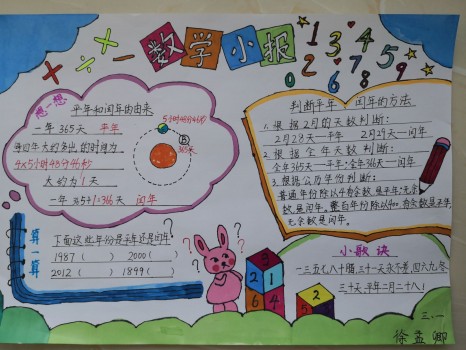 + ÷ × −
数学小报
1 3 4 5
2 7 6 9
0 8
想一想
平年和闰年的由来
一年365天 平年
每四年大约多出的时间为
4×5小时48分46秒
大约为1天
一年365+1=366天 闰年
5小时48分46秒
365天
判断平年、闰年的方法
1.根据2月的天数判断:
2月28天一平年 2月29天一闰年
2.根据全年天数判断:
全年365天一平年;全年366天一闰年
3.根据公历年份判断:
普通年份除以4有余数是平年;无余
数是闰年。整百年份除以400,有余数是平年
无余数是闰年。
算一算
下面这些年份是平年还是闰年
1987( ) 2000( )
2012( ) 1899( )
? ? ? ?
3
2 1
6 4
2
5
小歌诀
一三五七八十腊,三十一天永不差,四六九冬
三十天,平年二月二十八!
三、一
徐孟卿